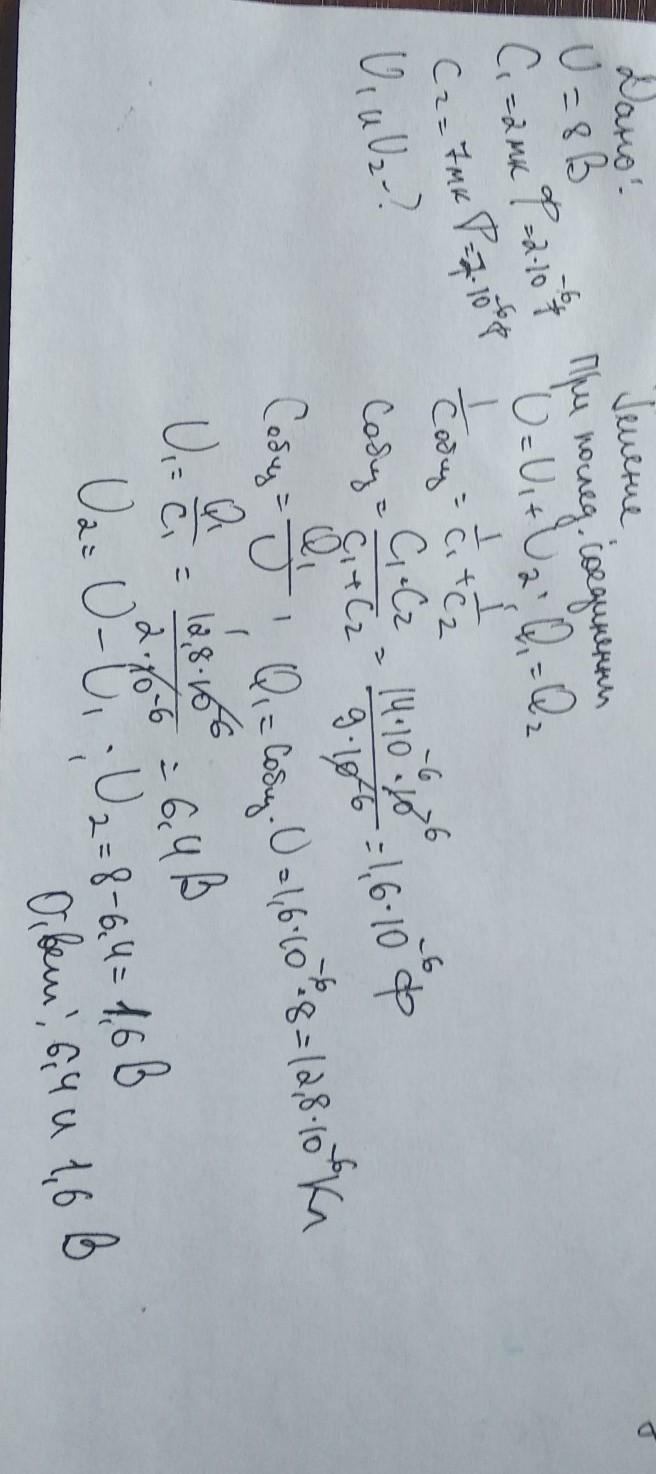 Дано:
U = 8 В
C₁ = 2 мк Ф = 2·10⁻⁶ Ф
C₂ = 7 мк Ф = 7·10⁻⁶ Ф
U₁ и U₂ - ?
Решение:
При послед. соединении
U = U₁ + U₂; Q₁ = Q₂
1/Cобщ = 1/C₁ + 1/C₂
Cобщ = C₁·C₂/C₁+C₂ = 14·10⁻⁶·10⁻⁶/9·10⁻⁶ = 1,6·10⁻⁶ Ф
Cобщ = Q₁/U, Q₁ = Cобщ·U = 1,6·10⁻⁶·8 = 12,8·10⁻⁶ Кл
U₁ = Q₁/C₁ = 12,8·10⁻⁶/2·10⁻⁶ = 6,4 В
U₂ = U - U₁; U₂ = 8 - 6,4 = 1,6 В
Ответ: 6,4 и 1,6 В